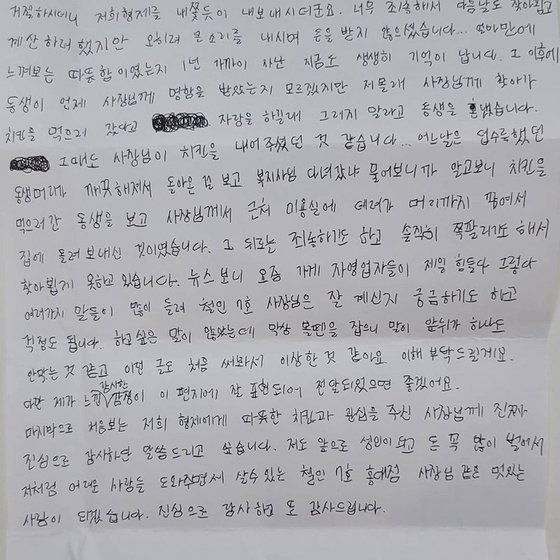 거절하시더니 저희형제를 내쫓듯이 내보내시더군요. 너무 죄송해서 다음날도 찾아뵙고
계산 하려 했지만 오히려 큰소리를 내시며 돈을 받지 않으셨습니다... 얼마만에
느껴보는 따뜻함이였는지 1년 가까이 지난 지금도 생생히 기억이 납니다. 그 이후에
동생이 언제 사장님께 명함을 받았는지 모르겠지만 저몰래 사장님께 찾아가
치킨을 먹으러 갔다고 자랑을 하길래 그러지 말라고 동생을 혼냈습니다.
그때도 사장님이 치킨을 내어주셨던 것 같습니다... 어느날은 덥수룩했던
동생머리가 깨끗해져서 돌아온 걸 보고 복지사님 다녀갔냐 물어보니까 알고보니 치킨을
먹으러간 동생을 보고 사장님께서 근처 미용실에 데려가 머리까지 깎여서
집에 돌려보내신 것이였습니다. 그 뒤로는 죄송하기도 하고 솔직히 쪽팔리기도 해서
찾아뵙지 못하고 있습니다. 뉴스보니 요즘 가게 자영업자들이 제일 힘들다 그렇다
여러가지 말들이 많이 들려 철인 7호 사장님은 잘 계신지 궁금하기도 하고
걱정도 됩니다. 하고싶은 말이 많았는데 막상 볼펜을 잡으니 말이 앞뒤가 하나도
안맞는 것 같고 이런 글도 처음 써봐서 이상한 것 같아요. 이해 부탁드릴게요.
다만 제가 느낀 감사한 감정이 이 편지에 잘 표현되어 전달되었으면 좋겠어요.
마지막으로 처음보는 저희 형제에게 따뜻한 치킨과 관심을 주신 사장님께 진짜
진심으로 감사하단 말씀드리고 싶습니다. 저도 앞으로 성인이되고 돈 꼭 많이 벌어서
저처럼 어려운 사람들 도와주면서 살수있는 철인 7호 홍대점 사장님 같은 멋있는
사람이 되겠습니다. 진심으로 감사하고 또 감사드립니다.